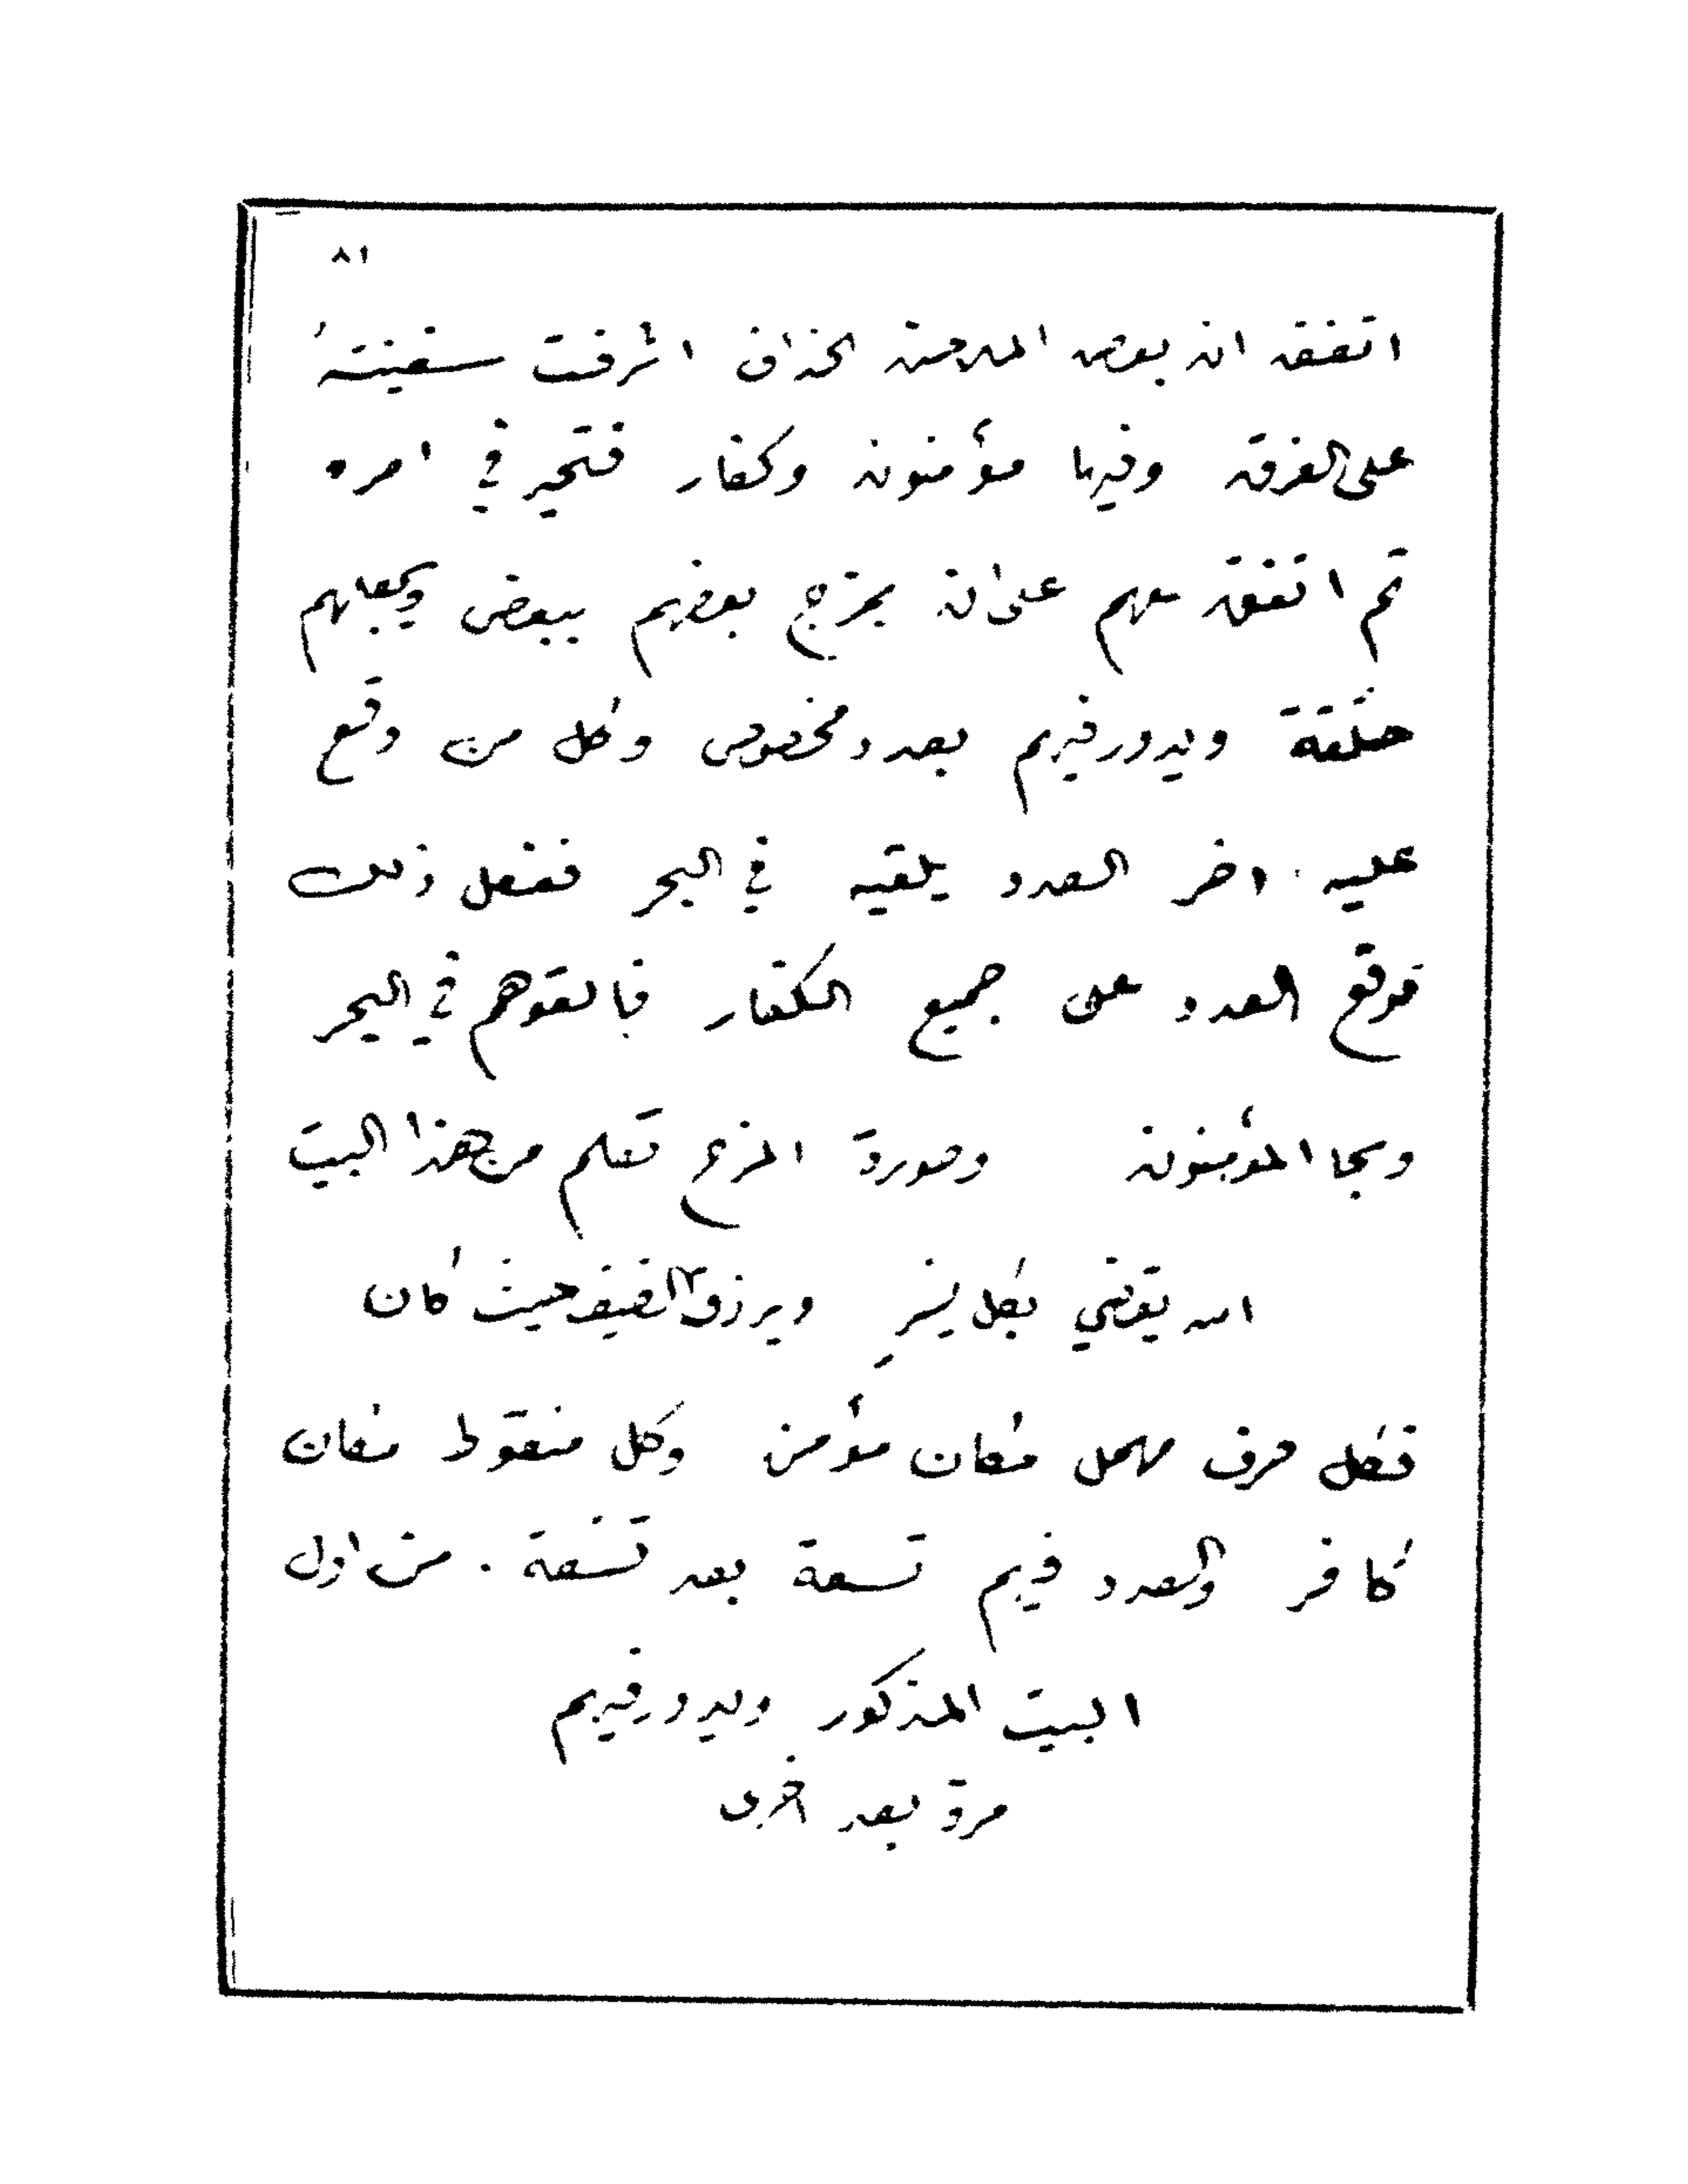 ٨١
اتفق ان بعض الملاحين الحذاق اشرفت سفينته
على الغرق وفيها مؤمنون وكفار فتحير في امره
ثم اتفق معهم على ان يمزج بعضهم ببعض ويجعلهم
حلقة ويدور فيهم بعدد مخصوص وكل من وقع
عليه اخر العدد يلقيه في البحر ففعل ذلك
فوقع العدد على جميع الكفار فالقوهم في البحر
ونجا المؤمنون وصورة المزج تعلم من هذا البيت
الله يقضي بكل يسر ويرزق الضيف حيث كان
فكل حرف مهمل مكان مؤمن وكل منقوط مكان
كافر والعدد فيهم تسعة بعد تسعة . من اول
البيت المذكور ويدور فيهم
مرة بعد اخرى